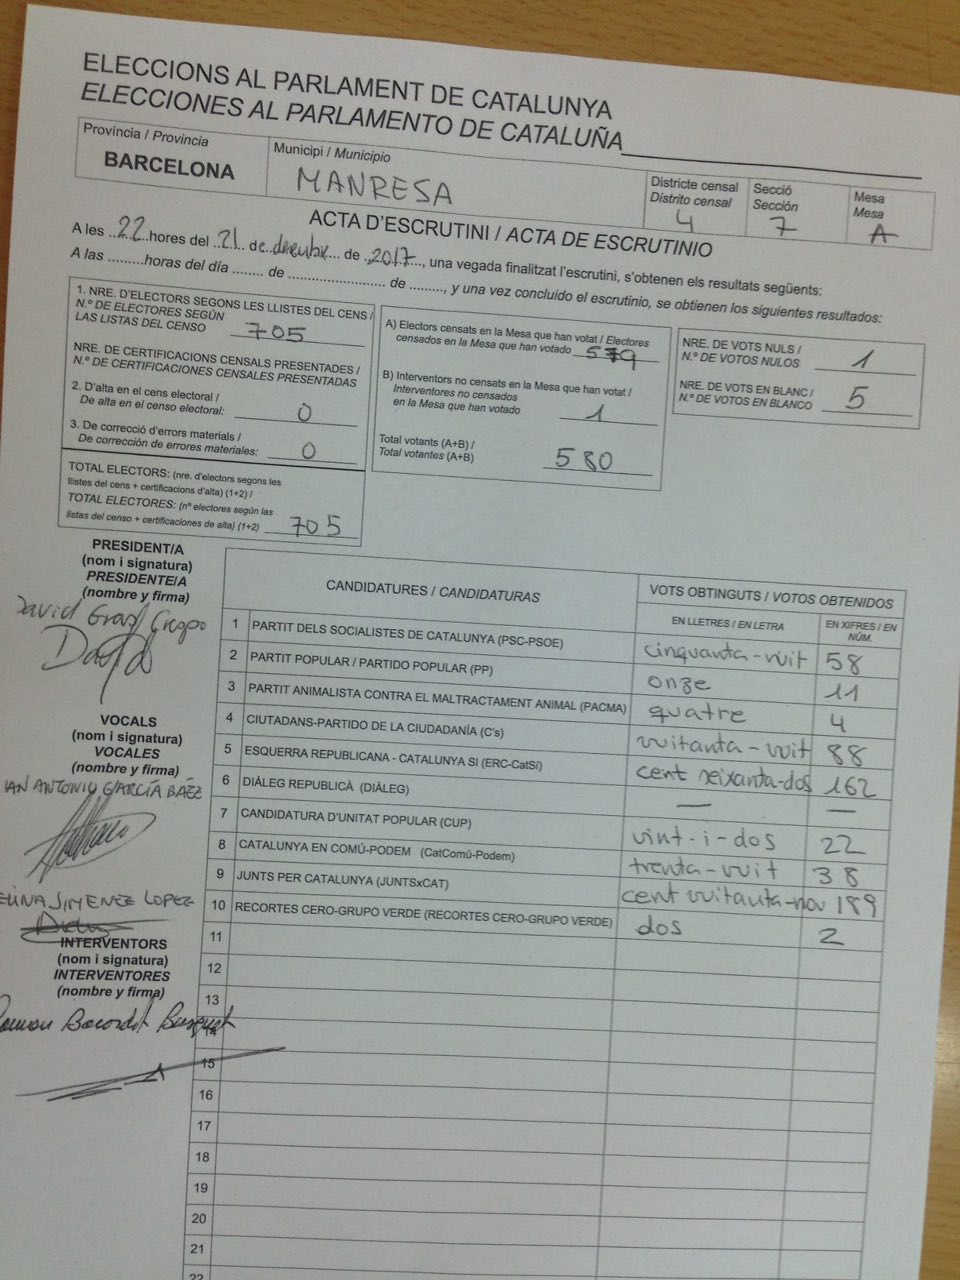 ELECCIONS AL PARLAMENT DE CATALUNYA
ELECCIONES AL PARLAMENTO DE CATALUÑA
Província / Provincia
BARCELONA
Municipi / Municipio
MANRESA
Districte censal
Distrito censal
4
Secció
Sección
7
Mesa
Mesa
A
ACTA D'ESCRUTINI / ACTA DE ESCRUTINIO
A les ..22..hores del .21. de desembre... de .2017.., una vegada finalitzat l'escrutini, s'obtenen els resultats següents:
A las .........horas del día ........ de ........................... de ........., y una vez concluido el escrutinio, se obtienen los siguientes resultados:
1. NRE. D'ELECTORS SEGONS LES LLISTES DEL CENS /
N.º DE ELECTORES SEGÚN
LAS LISTAS DEL CENSO 705
NRE. DE CERTIFICACIONS CENSALS PRESENTADES /
N.º DE CERTIFICACIONES CENSALES PRESENTADAS
2. D'alta en el cens electoral /
De alta en el censo electoral: 0
3. De correcció d'errors materials /
De corrección de errores materiales: 0
TOTAL ELECTORS: (nre. d'electors segons les
llistes del cens + certificacions d'alta) (1+2) /
TOTAL ELECTORES: (nº electores según las
listas del censo + certificaciones de alta) (1+2) 705
A) Electors censats en la Mesa que han votat / Electores
censados en la Mesa que han votado 579
B) Interventors no censats en la Mesa que han votat /
Interventores no censados
en la Mesa que han votado 1
Total votants (A+B) /
Total votantes (A+B) 580
NRE. DE VOTS NULS /
N.º DE VOTOS NULOS 1
NRE. DE VOTS EN BLANC /
N.º DE VOTOS EN BLANCO 5
PRESIDENT/A
(nom i signatura)
PRESIDENTE/A
(nombre y firma)
David
VOCALS
(nom i signatura)
VOCALES
(nombre y firma)
ANTONIO GARCÍA BÁEZ
JIMENEZ LOPEZ
INTERVENTORS
(nom i signatura)
INTERVENTORES
(nombre y firma)
CANDIDATURES / CANDIDATURAS
VOTS OBTINGUTS / VOTOS OBTENIDOS
EN LLETRES / EN LETRA
EN XIFRES / EN NÚM.
1 PARTIT DELS SOCIALISTES DE CATALUNYA (PSC-PSOE) cinquanta-vuit 58
2 PARTIT POPULAR / PARTIDO POPULAR (PP) onze 11
3 PARTIT ANIMALISTA CONTRA EL MALTRACTAMENT ANIMAL (PACMA) quatre 4
4 CIUTADANS-PARTIDO DE LA CIUDADANÍA (C's) vuitanta-vuit 88
5 ESQUERRA REPUBLICANA - CATALUNYA SI (ERC-CatSí) cent seixanta-dos 162
6 DIÀLEG REPUBLICÀ (DIÀLEG) — —
7 CANDIDATURA D'UNITAT POPULAR (CUP) vint-i-dos 22
8 CATALUNYA EN COMÚ-PODEM (CatComú-Podem) trenta-vuit 38
9 JUNTS PER CATALUNYA (JUNTSxCAT) cent vuitanta-nou 189
10 RECORTES CERO-GRUPO VERDE (RECORTES CERO-GRUPO VERDE) dos 2
11
12
13
14
15
16
17
18
19
20
21
22